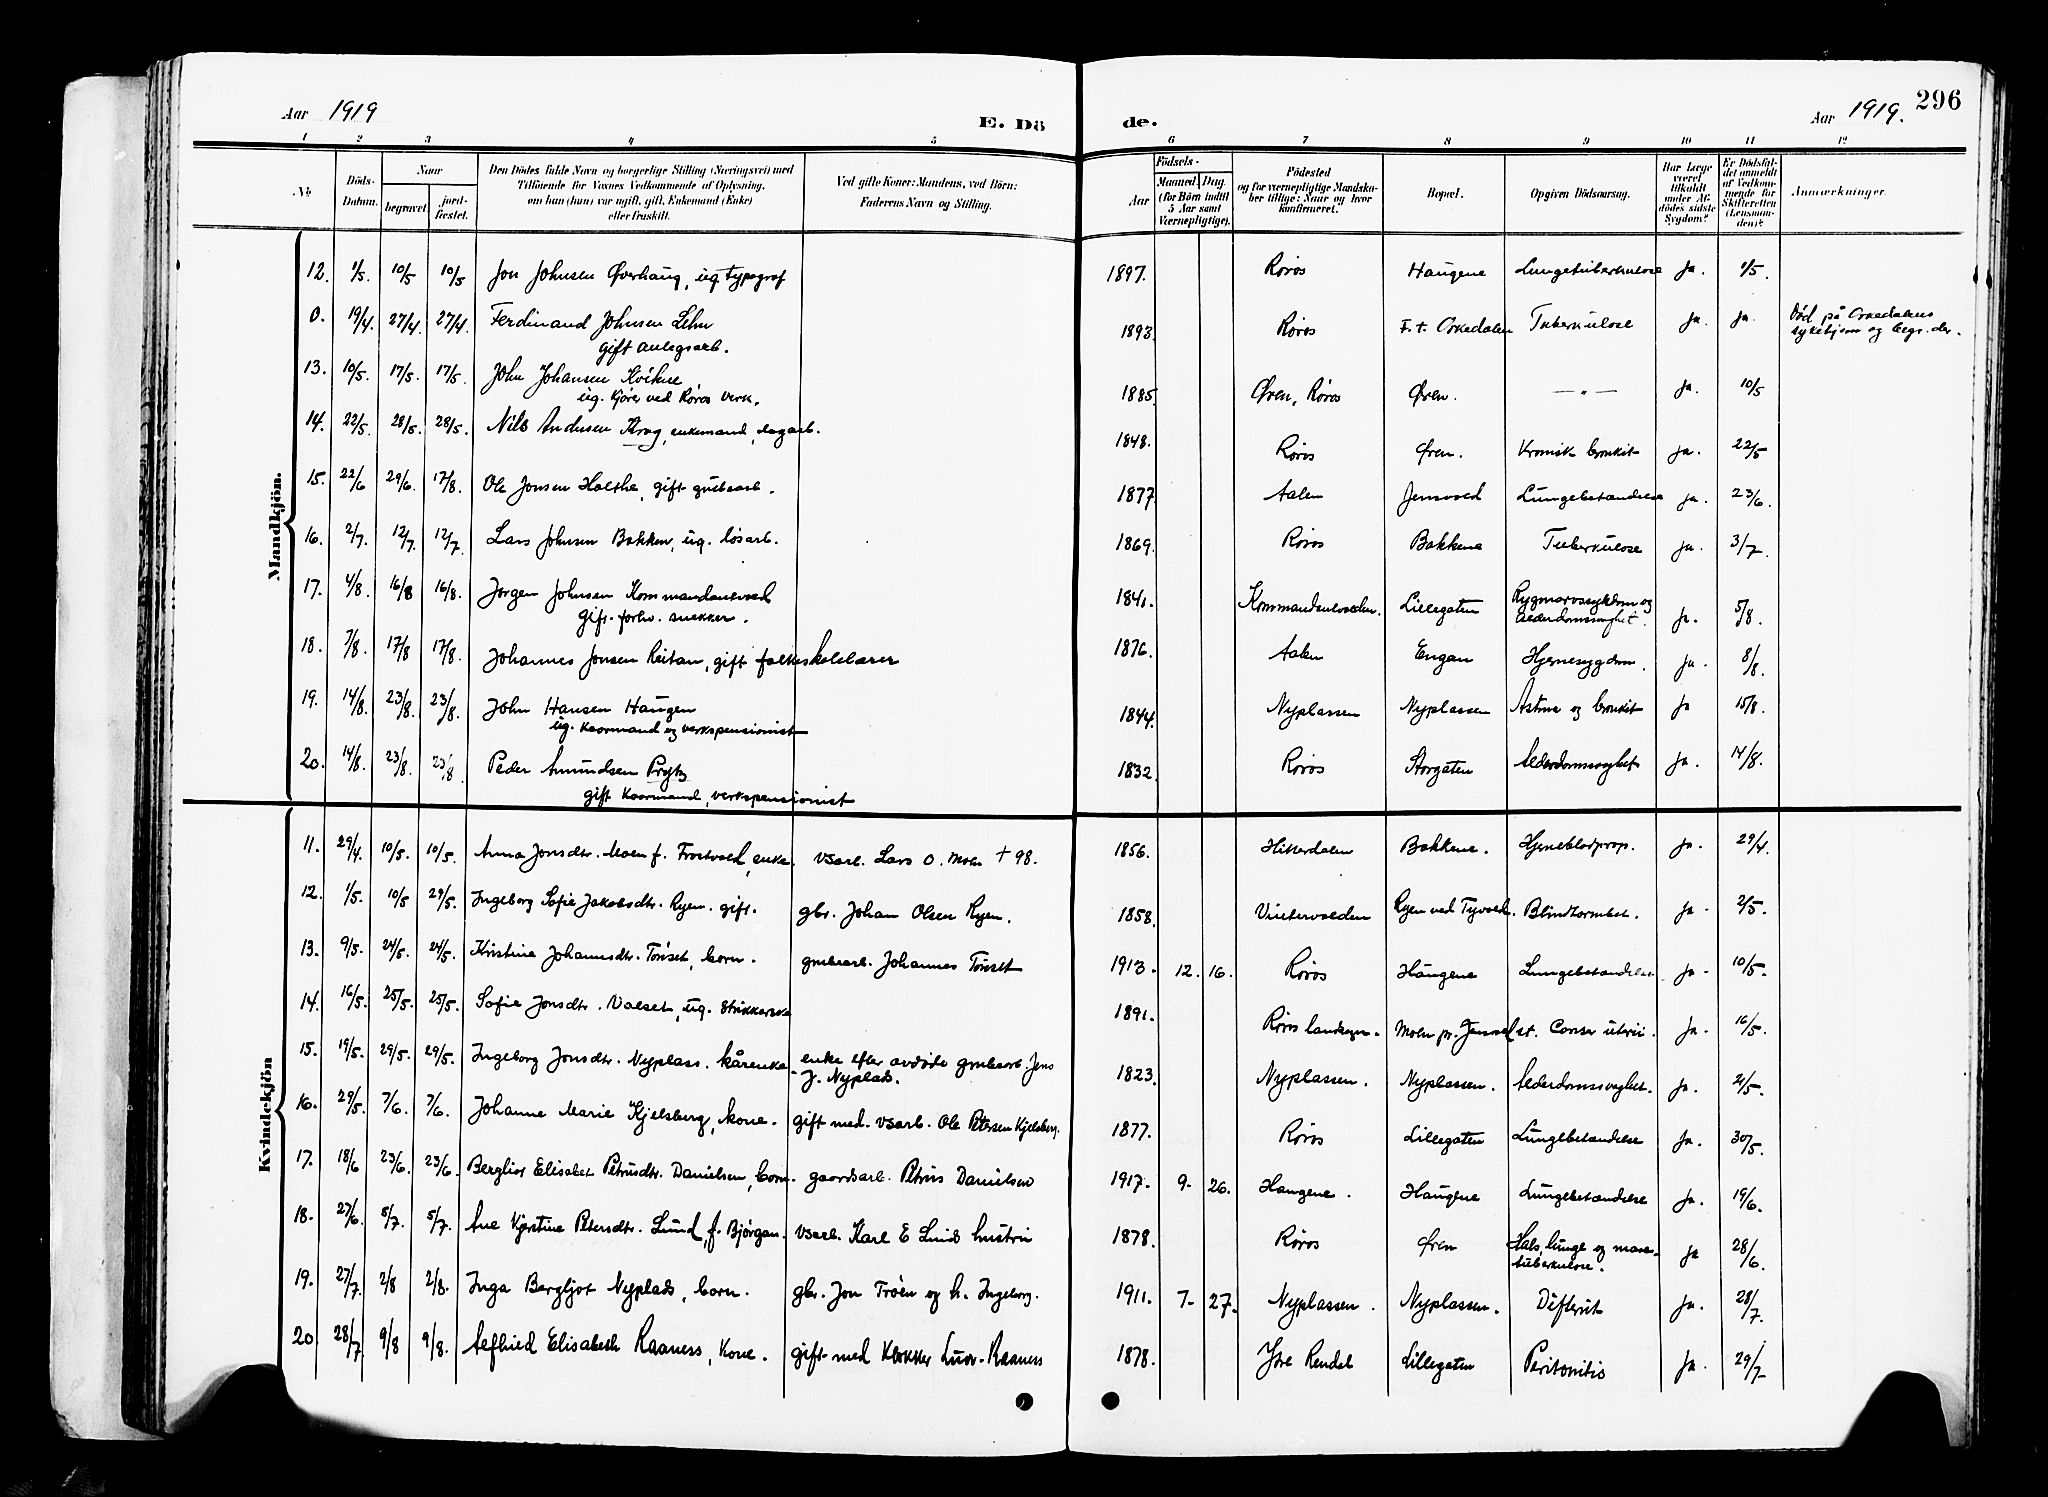 Aar 1919
E. Dö
de.
Aar 1919. 296
1 2 3 4 5 6 7 8 9 10 11 12
No. Döds-Datum. Naar begravet. jord-fæstet. Den Dödes fulde Navn og borgerlige Stilling (Næringsvei) med Tilföiende for Voxnes Vedkommende af Oplysning, om han (hun) var ugift, gift, Enkemand (Enke) eller fraskilt. Ved gifte Koner: Mandens, ved Börn: Faderens Navn og Stilling.
Födsels- Aar Maaned. Dag. (for Börn indtil 5 Aar samt Værnepligtige). Födested og for værnepligtige Mandskaber tillige: Naar og hvor konfirmeret. Bopæl. Opgiven Dödsaarsag. Har Læge været tilkaldt under Afdödes sidste Sygdom? Er Dödsfaldet anmeldt af Vedkommende for Skifteretten (Lensmanden)? Anmærkninger.
Mandkjön.
12. 1/5. 10/5 10/5 Jon Johnsen Øverhaug, ug. typograf 1897. Røros Haugene Lungetuberkulose Ja. 1/5.
0. 19/4. 27/4. 27/4. Ferdinand Johnsen Lehn 1893. Røros F. t. Orkedalen Tuberkulose Ja. Ja. Død på Orkedalens
gift anlegsarb. sykehjem og begr. der.
13. 10/5. 17/5. 17/5. John Johansen Kvikne 1885. Øren, Røros Øren. — " — Ja. 10/5
ug. kjører ved Røros verk.
14. 22/5. 28/5. 28/5. Nils Andersen Krog, enkemand, dagarb. 1848. Røros Øren. Kronisk bronkit Ja. 22/5
15. 22/6 29/6. 17/8. Ole Jonsen Holthe, gift grubearb. 1877 Aalen Jensvold Lungebetændelse Ja. 23/6.
16. 2/7. 12/7. 12/7 Lars Johnsen Bakken, ug. løsarb. 1869. Røros Bakkene Tuberkulose Ja. 3/7.
17. 4/8. 16/8 16/8. Jørgen Johnsen Kommandantvold 1841. Kommandantvolden. Lillegaten Rygmarvssykdom og
gift. forhv. snekker. alderdomssvaghet. Ja. 5/8.
18. 7/8. 17/8 17/8. Johannes Jonsen Reitan, gift folkeskolelærer 1876. Aalen Engan Hjernesygdom. Ja. 8/8.
19. 14/8. 23/8. 23/8. John Hansen Haugen 1844. Nyplassen Nyplassen Astma og bronkit Ja 15/8.
ug. Koormand og verkspensionist
20. 14/8. 23/8. 23/8 Peder Amundsen Prytz 1832. Røros Storgaten Alderdomssvaghet Ja. 14/8.
gift Koormand, verkspensionist
Kvindekjön
11. 29/4. 10/5. 10/5. Anna Jonsdtr. Moen f. Frostvold, enke. vsarb. Lars O. Moen + 98. 1856. Hitterdalen Bakkene. Hjerneblodprop. Ja. 29/4.
12. 1/5. 10/5 29/5. Ingeborg Sofie Jakobsdtr. Ryen. gift. gbr. Johan Olsen Ryen. 1858. Vintervolden Ryen ved Tyvold. Blindtarmbet. Ja. 2/5.
13. 9/5. 24/5. 24/5. Kristine Johannesdtr. Tønset, barn. grubearb. Johannes Tønset 1913. 12. 16. Røros Haugene Lungebetændelse Ja. 10/5.
14. 16/5. 25/5. 25/5. Sofie Jonsdtr. Valset, ug. strikkerske 1891. Røros landsogn. Moen pr. Jensvold st. Canser uterii. Ja. 16/5.
15. 19/5. 29/5. 29/5. Ingeborg Jonsdtr. Nyplass. kårenke enke efter avdøde grubearb. Jens
J. Nyplads. 1823. Nyplassen. Nyplassen. Alderdomssvaghet. Ja. 2/5.
16. 29/5. 7/6. 7/6. Johanne Marie Kjelsberg, kone. gift med. vsarb. Ole Petersen Kjelsberg. 1877. Røros Lillegaten Lungebetændelse Ja. 30/5.
17. 18/6 23/6. 23/6. Bergliot Elisabet Petrusdtr. Danielsen, barn. gaardsarb. Petrus Danielsen 1917. 9. 26. Haugene. Haugene Lungebetændelse Ja. 19/6.
18. 27/6. 5/7. 5/7. Ane Kjerstine Petersdtr. Lund, f. Bjørgan. vsarb. Karl E Lunds hustru 1878. Røros Øren Hals, lunge og mave-
tuberkulose. Ja 28/6.
19. 27/7. 2/8 2/8. Inga Bergljot Nyplads, barn. gbr. Jon Trøen og h. Ingeborg. 1911. 7. 27. Nyplassen. Nyplassen. Difterit Ja. 28/7.
20. 28/7 9/8 9/8. Aelfhied Elisabeth Raaness, Kone. gift med Klokker Raaness 1878. Yre Rendal Lillegaten Peritonitis Ja. 29/7